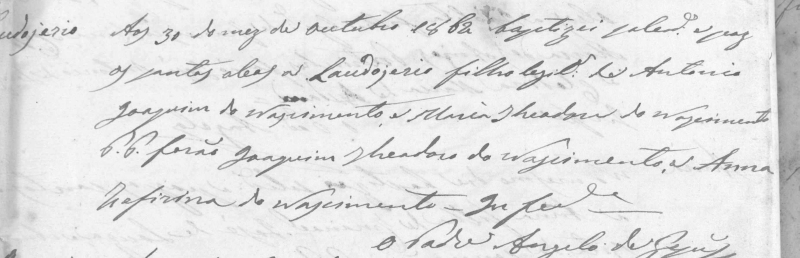 Aos 30 do mez de outubro 1862 baptizei solem.e e puz
os santos oleos a Laudojerio filho legit.º de Antonio
Joaquim do Nascimento, e Maria Theodora do Nascimento
P.P. forão Joaquim Theodoro do Nascimento, e Anna
Zefirina do Nascimento - In fe de
O Padre Angelo de